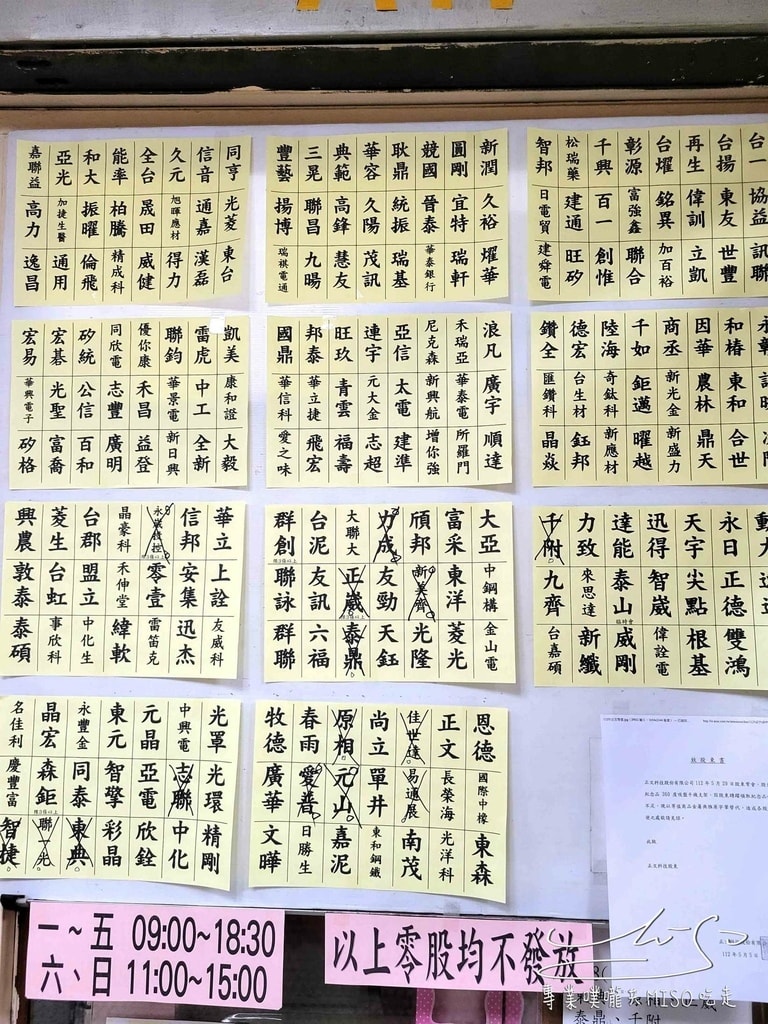 嘉聯益 亞光 和大 能率 全台 久元 信音 同亨
高力 加捷生醫 振曜 柏騰 晟田 旭暉應材 通嘉 光菱
逸昌 通用 倫飛 精成科 威健 得力 漢磊 東台
豐藝 三晃 典範 華容 耿鼎 競國 圓剛 新潤
揚博 聯昌 高鋒 久陽 統振 晉泰 宜特 久裕
瑞祺電通 九暘 慧友 茂訊 瑞基 華泰銀行 瑞軒 燿華
智邦 松瑞藥 千興 彰源 台燿 再生 台揚
日電貿 建通 百一 富強鑫 銘異 偉訓 東友 協益
建舜電 旺矽 創惟 聯合 加百裕 立凱 世豐 訊聯
宏易 宏碁 矽統 同欣電 優你康 聯鈞 雷虎 凱美
華興電子 光聖 公信 志豐 禾昌 華景電 中工 康和證
矽格 富喬 百和 廣明 益登 新日興 全新 大毅
國鼎 邦泰 旺玖 連宇 亞信 尼克森 禾瑞亞 浪凡
華信科 華立捷 青雲 元大金 太電 新興航 華泰電 廣宇
愛之味 飛宏 福壽 志超 建準 增你強 所羅門 順達
鑽全 德宏 陸海 千如 商丞 因華 和椿
匯鑽科 台生材 奇鈦科 鉅邁 新光金 農林 東和
晶焱 鈺邦 新應材 曜越 新盛力 鼎天 合世
興農 菱生 台郡 晶豪科 信邦 華立
敦泰 台虹 盟立 禾伸堂 零壹 安集 上詮
泰碩 事欣科 中化生 緯軟 雷笛克 迅杰 友威科
群創 台泥 大聯大 力成 頎邦 富采 大亞
聯詠 友訊 正崴 友勁 新美齊 東洋 中鋼構
群聯 六福 泰鼎 天鈺 光隆 菱光 金山電
千附 力致 達能 迅得 天宇 永日
九齊 來思達 泰山 智崴 尖點 正德
台嘉碩 新纖 威剛 偉詮電 根基 雙鴻
名佳利 晶宏 永豐金 東元 元晶 中興電 光罩
慶豐富 森鉅 同泰 智擎 亞電 志聯 光環
智捷 聯光 東典 彩晶 欣銓 中化 精剛
牧德 春雨 原相 尚立 佳世達 正文 恩德
廣華 愛普 元山 單井 易通展 長榮海 國際中橡
文曄 日勝生 嘉泥 東和鋼鐵 南茂 光洋科 東森
一~五 09:00~18:30
六、日 11:00~15:00
以上零股均不發放
此致
正文科技股東
112年5月5日
專業噗嚨共MISO吃走
泰鼎、千附